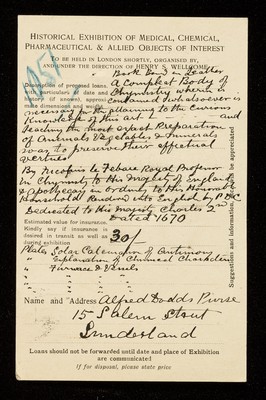 HISTORICAL EXHIBITION OF MEDICAL, CHEMICAL,
PHARMACEUTICAL & ALLIED OBJECTS OF INTEREST
TO BE HELD IN LONDON SHORTLY, ORGANISED BY,
AND UNDER THE DIRECTION OF HENRY S. WELLCOME
Book Bond in Leather
Description of proposed loans.
A Compleat Body of
Full particulars as to date and
Chymistry wherein is
history (if known), approximate
contained whatsoever is
dimensions and weight.
necessary for the attaining to the Curious
Knowledge of this art
and
teaching the most exact Preparation
of Animals Vegetables & Minerals
so as to preserve their effectual
vertues
By Nicefius le Febure Royal Profesor
in Chymistry to his Majesty of England
& Apothecary in ordinary to this Honorable
Household Rendred into English by P D C
Dedicated to His Majesty Charles 2nd
Dated 1670
Estimated value for insurance.
Kindly say if insurance is
desired in transit as well as
during exhibition
30/-
Plate Solar Calcination of Antimony
" Explanation of Chemical Characters
" Furnace & Vessels
Name and Address Alfred Dodds
15 Salem Street
Sunderland
Loans should not be forwarded until date and place of Exhibition
are communicated
If for disposal, please state price
Suggestions and information will be appreciated